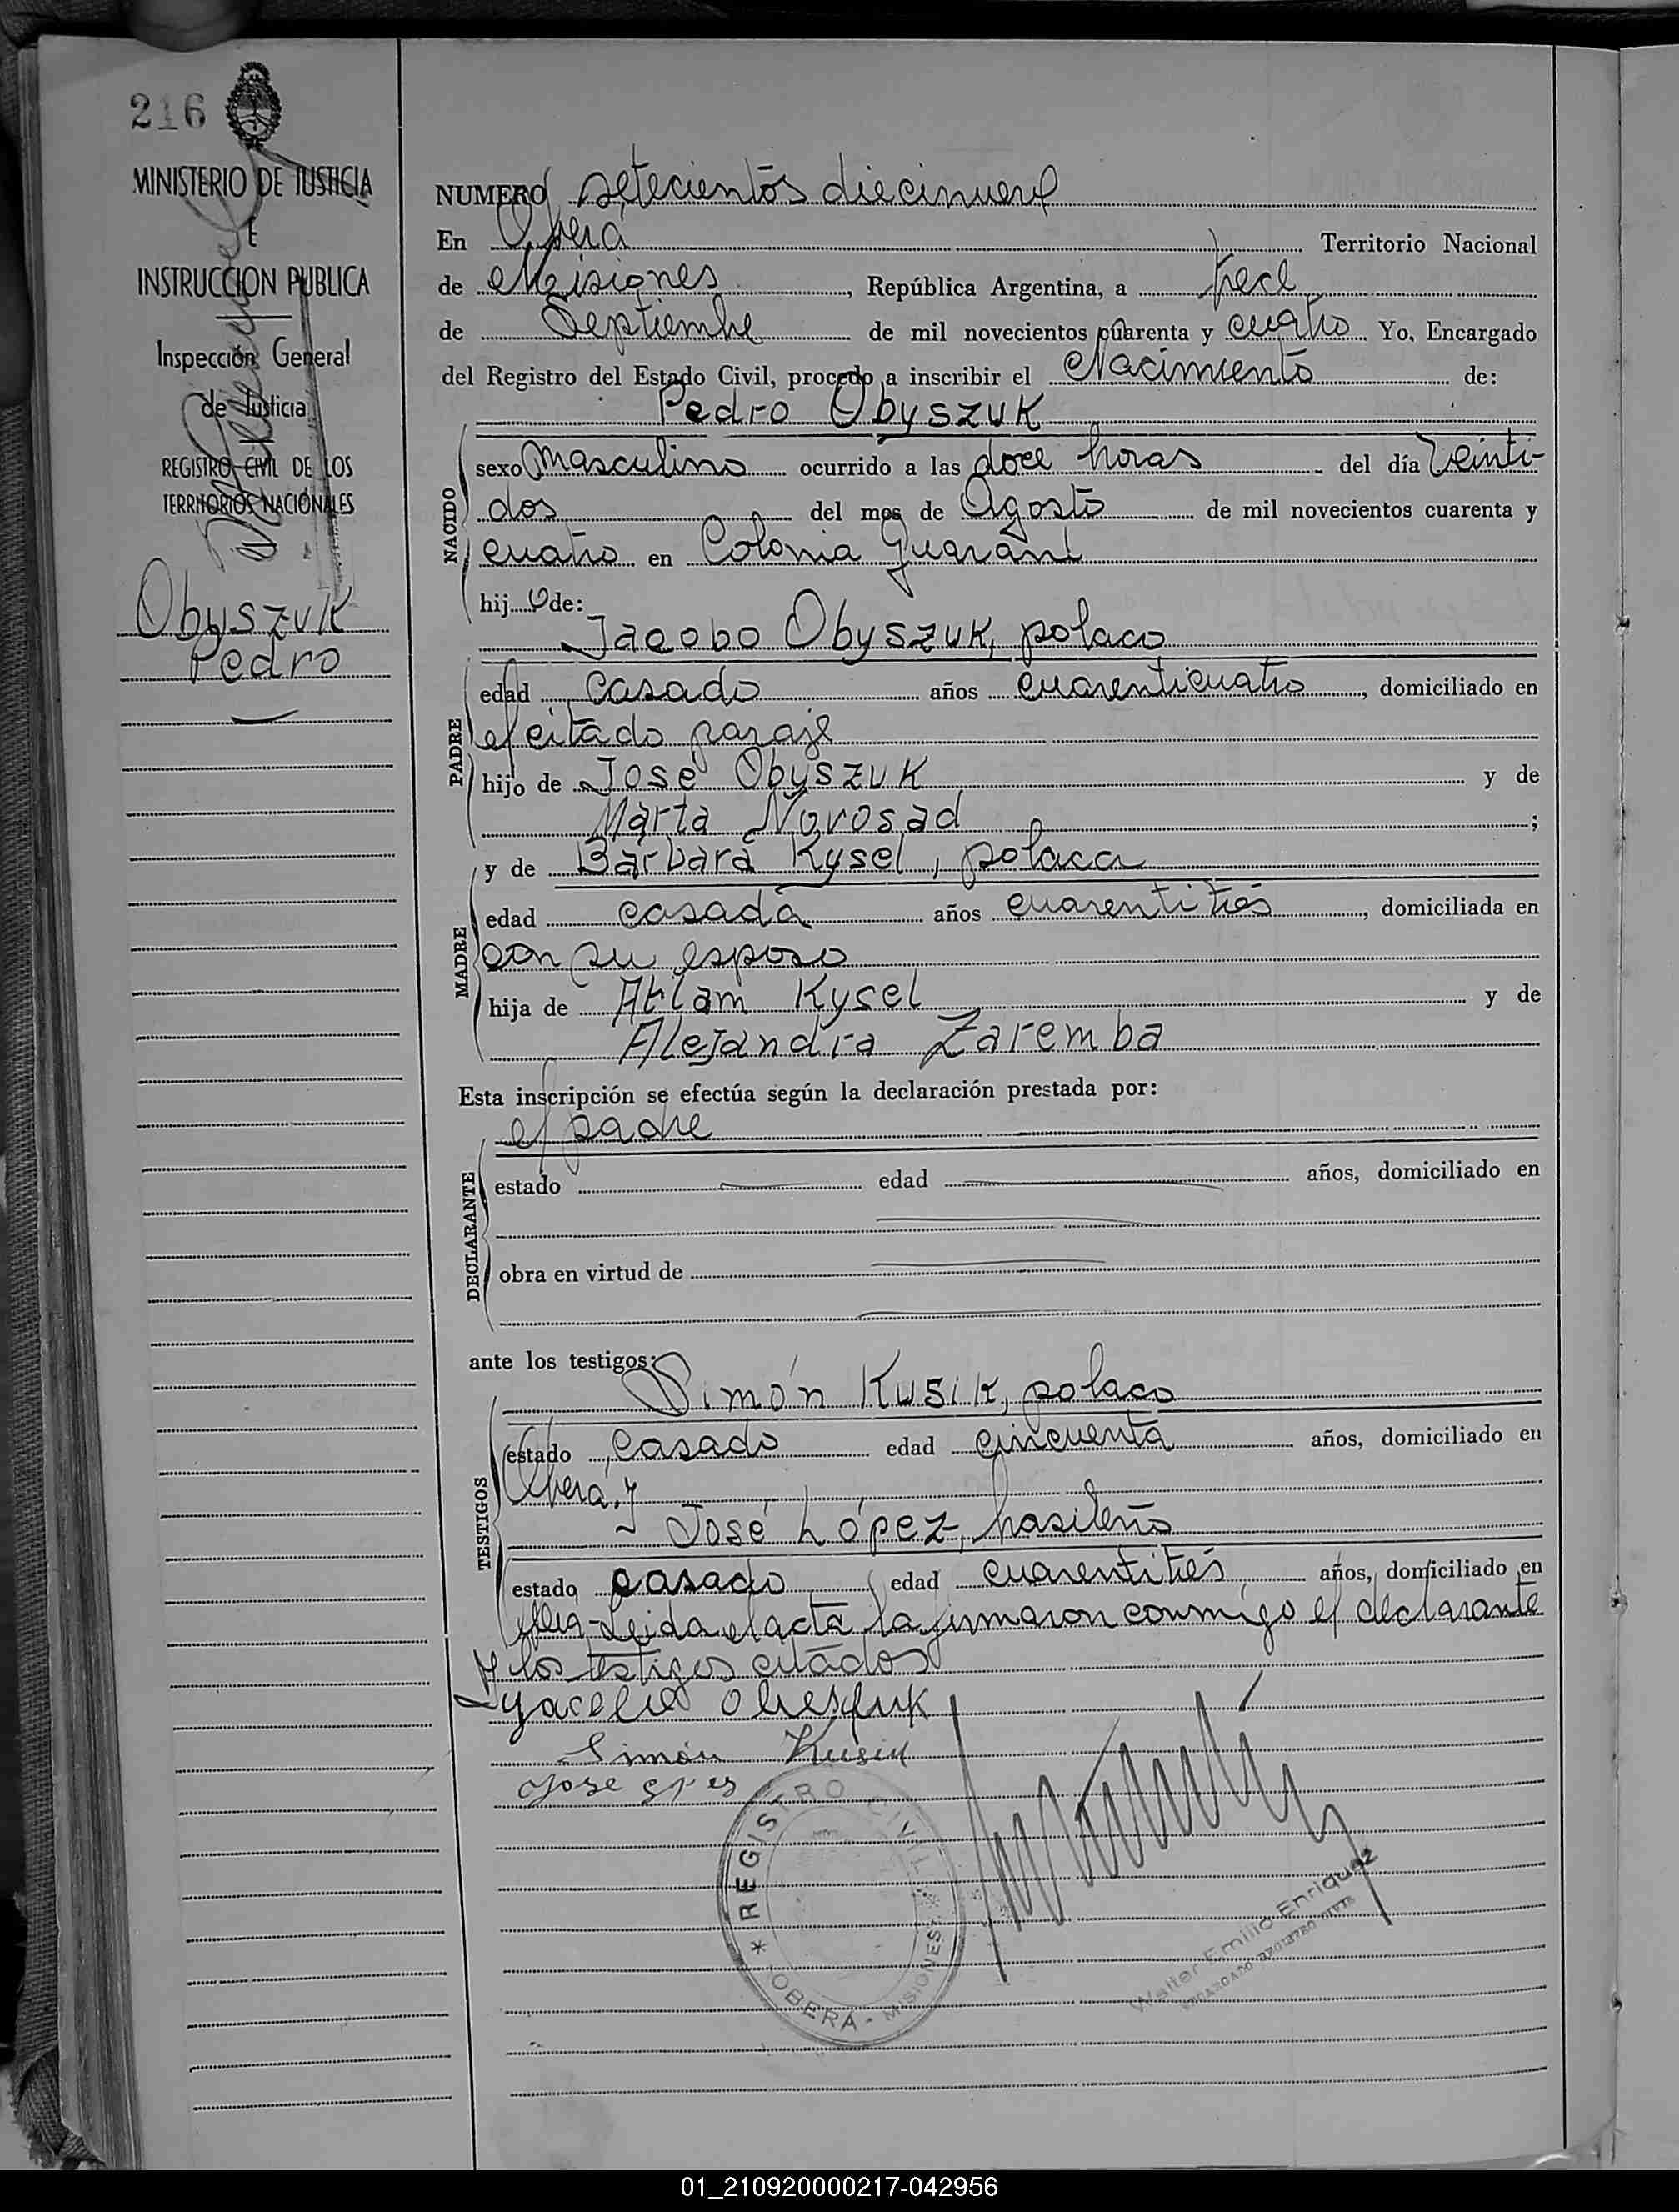 216
MINISTERIO DE JUSTICIA
E
INSTRUCCION PUBLICA
Inspección General
de Justicia
REGISTRO CIVIL DE LOS
TERRITORIOS NACIONALES
Obyszuk
Pedro
NUMERO setecientos diecinueve
En Oberá Territorio Nacional
de Misiones, República Argentina, a trece
de Septiembre de mil novecientos cuarenta y cuatro Yo, Encargado
del Registro del Estado Civil, procedo a inscribir el Nacimiento de:
Pedro Obyszuk
NACIDO
sexo Masculino ocurrido a las doce horas del día Veinti-
dos del mes de Agosto de mil novecientos cuarenta y
cuatro en Colonia Guaraní
hijo de:
Jacobo Obyszuk, polaco
PADRE
edad casado años cuarenticuatro, domiciliado en
el citado paraje
hijo de José Obyszuk y de
Marta Norosad;
y de Bárbara Kysel, polaca
MADRE
edad casada años cuarentitrés, domiciliada en
con su esposo
hija de Kysel y de
Alejandra Zaremba
Esta inscripción se efectúa según la declaración prestada por:
el padre
DECLARANTE
estado edad años, domiciliado en
obra en virtud de
ante los testigos:
Simón Kusik, polaco
TESTIGOS
estado casado edad cincuenta años, domiciliado en
Oberá, y
José López, brasileño
estado casado edad cuarentitrés años, domiciliado en
Oberá-Leida el acta la firmaron conmigo el declarante
y los testigos citados
Simón Kusik
Jose
REGISTRO CIVIL
OBERÁ - MISIONES
Walter Emilio Enriquez
ENCARGADO REGISTRO CIVIL
01_210920000217-042956